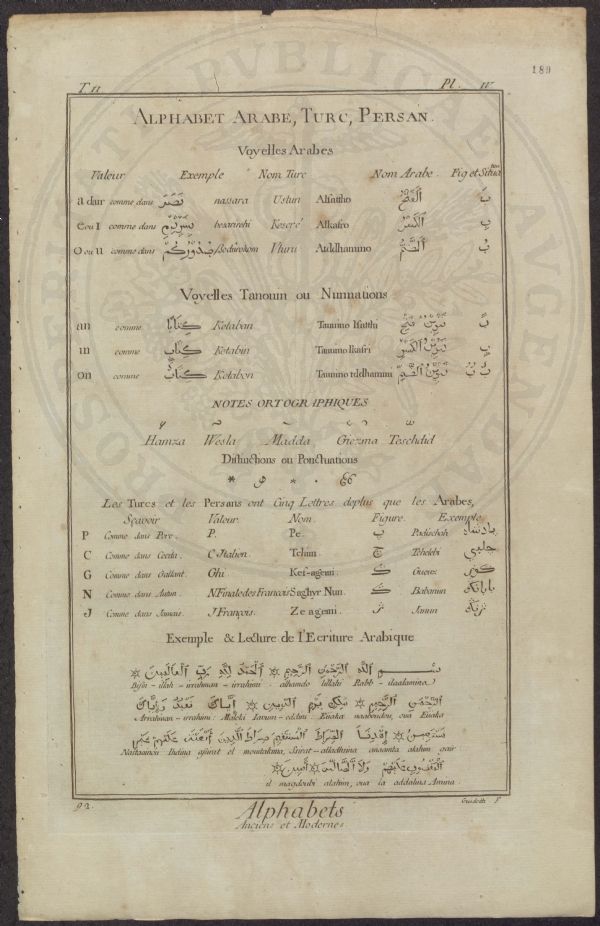 189
T. II Pl. IV
ALPHABET ARABE, TURC, PERSAN.
Voyelles Arabes
Valeur Exemple Nom Turc Nom Arabe Fig et Situa
comme dans نَصَرَ nassara Ustun Alfattho اَلْفَتْحُ
e ou i comme dans Keseré Alkasro اَلْكَسْرُ
o ou u comme dans Uturu Atddhammo اَلضَّمُّ
Voyelles Tanouin ou Nunnations
an comme كِتَابًا Ketaban Tanuino lfatthi
in comme كِتَابٍ Ketabin Tanuino lkasri
on comme كِتَابٌ Ketabon Tanuino tddhammi
NOTES ORTOGRAPHIQUES
Hamza Wesla Madda Giezma Teschdid
Distinctions ou Ponctuations
Les Turcs et les Persans ont Cinq Lettres deplus que les Arabes,
Sçavoir Valeur Nom Figure Exemple
P Comme dans Pere. P. Pe. پ Padischah پادشاه
C Comme dans Cecda. C Italien. Tchim. چ Tchelebi چلبي
G Comme dans Gallant. Ghi Kef-agemi. Gueuz
N Comme dans Autun. N Finale des François Saghyr Nun. Babanun
J Comme dans Jamais. J François. Ze agemi. ژ Janun
Exemple & Lecture de l'Ecriture Arabique
بِسْــمِ اللّٰهِ الرَّحْمٰنِ الرَّحِيمِ اَلْحَمْدُ لِلّٰهِ رَبِّ الْعَالَمِينَ
Bism - illah - irrahman - irrahimi : alhamdo lillahi Rabb - ilaalamina
الرَّحْمٰنِ الرَّحِيمِ مٰلِكِ يَوْمِ الدِّينِ اِيَّاكَ نَعْبُدُ وَاِيَّاكَ
Arrahman - irrahimi : Maleki Iaoum - eddini Euaka naabondou, oua Euaka
نَسْتَعِينُ اِهْدِنَا الصِّرَاطَ الْمُسْتَقِيمَ صِرَاطَ الَّذِينَ اَنْعَمْتَ عَلَيْهِمْ غَيْرِ
Nastaainou Ihdina assirat el moustakima, Ssirat - alladhina anaamta alahim gair
الْمَغْضُوبِ عَلَيْهِمْ وَلَا الضَّالِّينَ اٰمِينَ
il magdoubi alahim, oua la addalina Amina.
92. F
Alphabets
Anciens et Modernes.